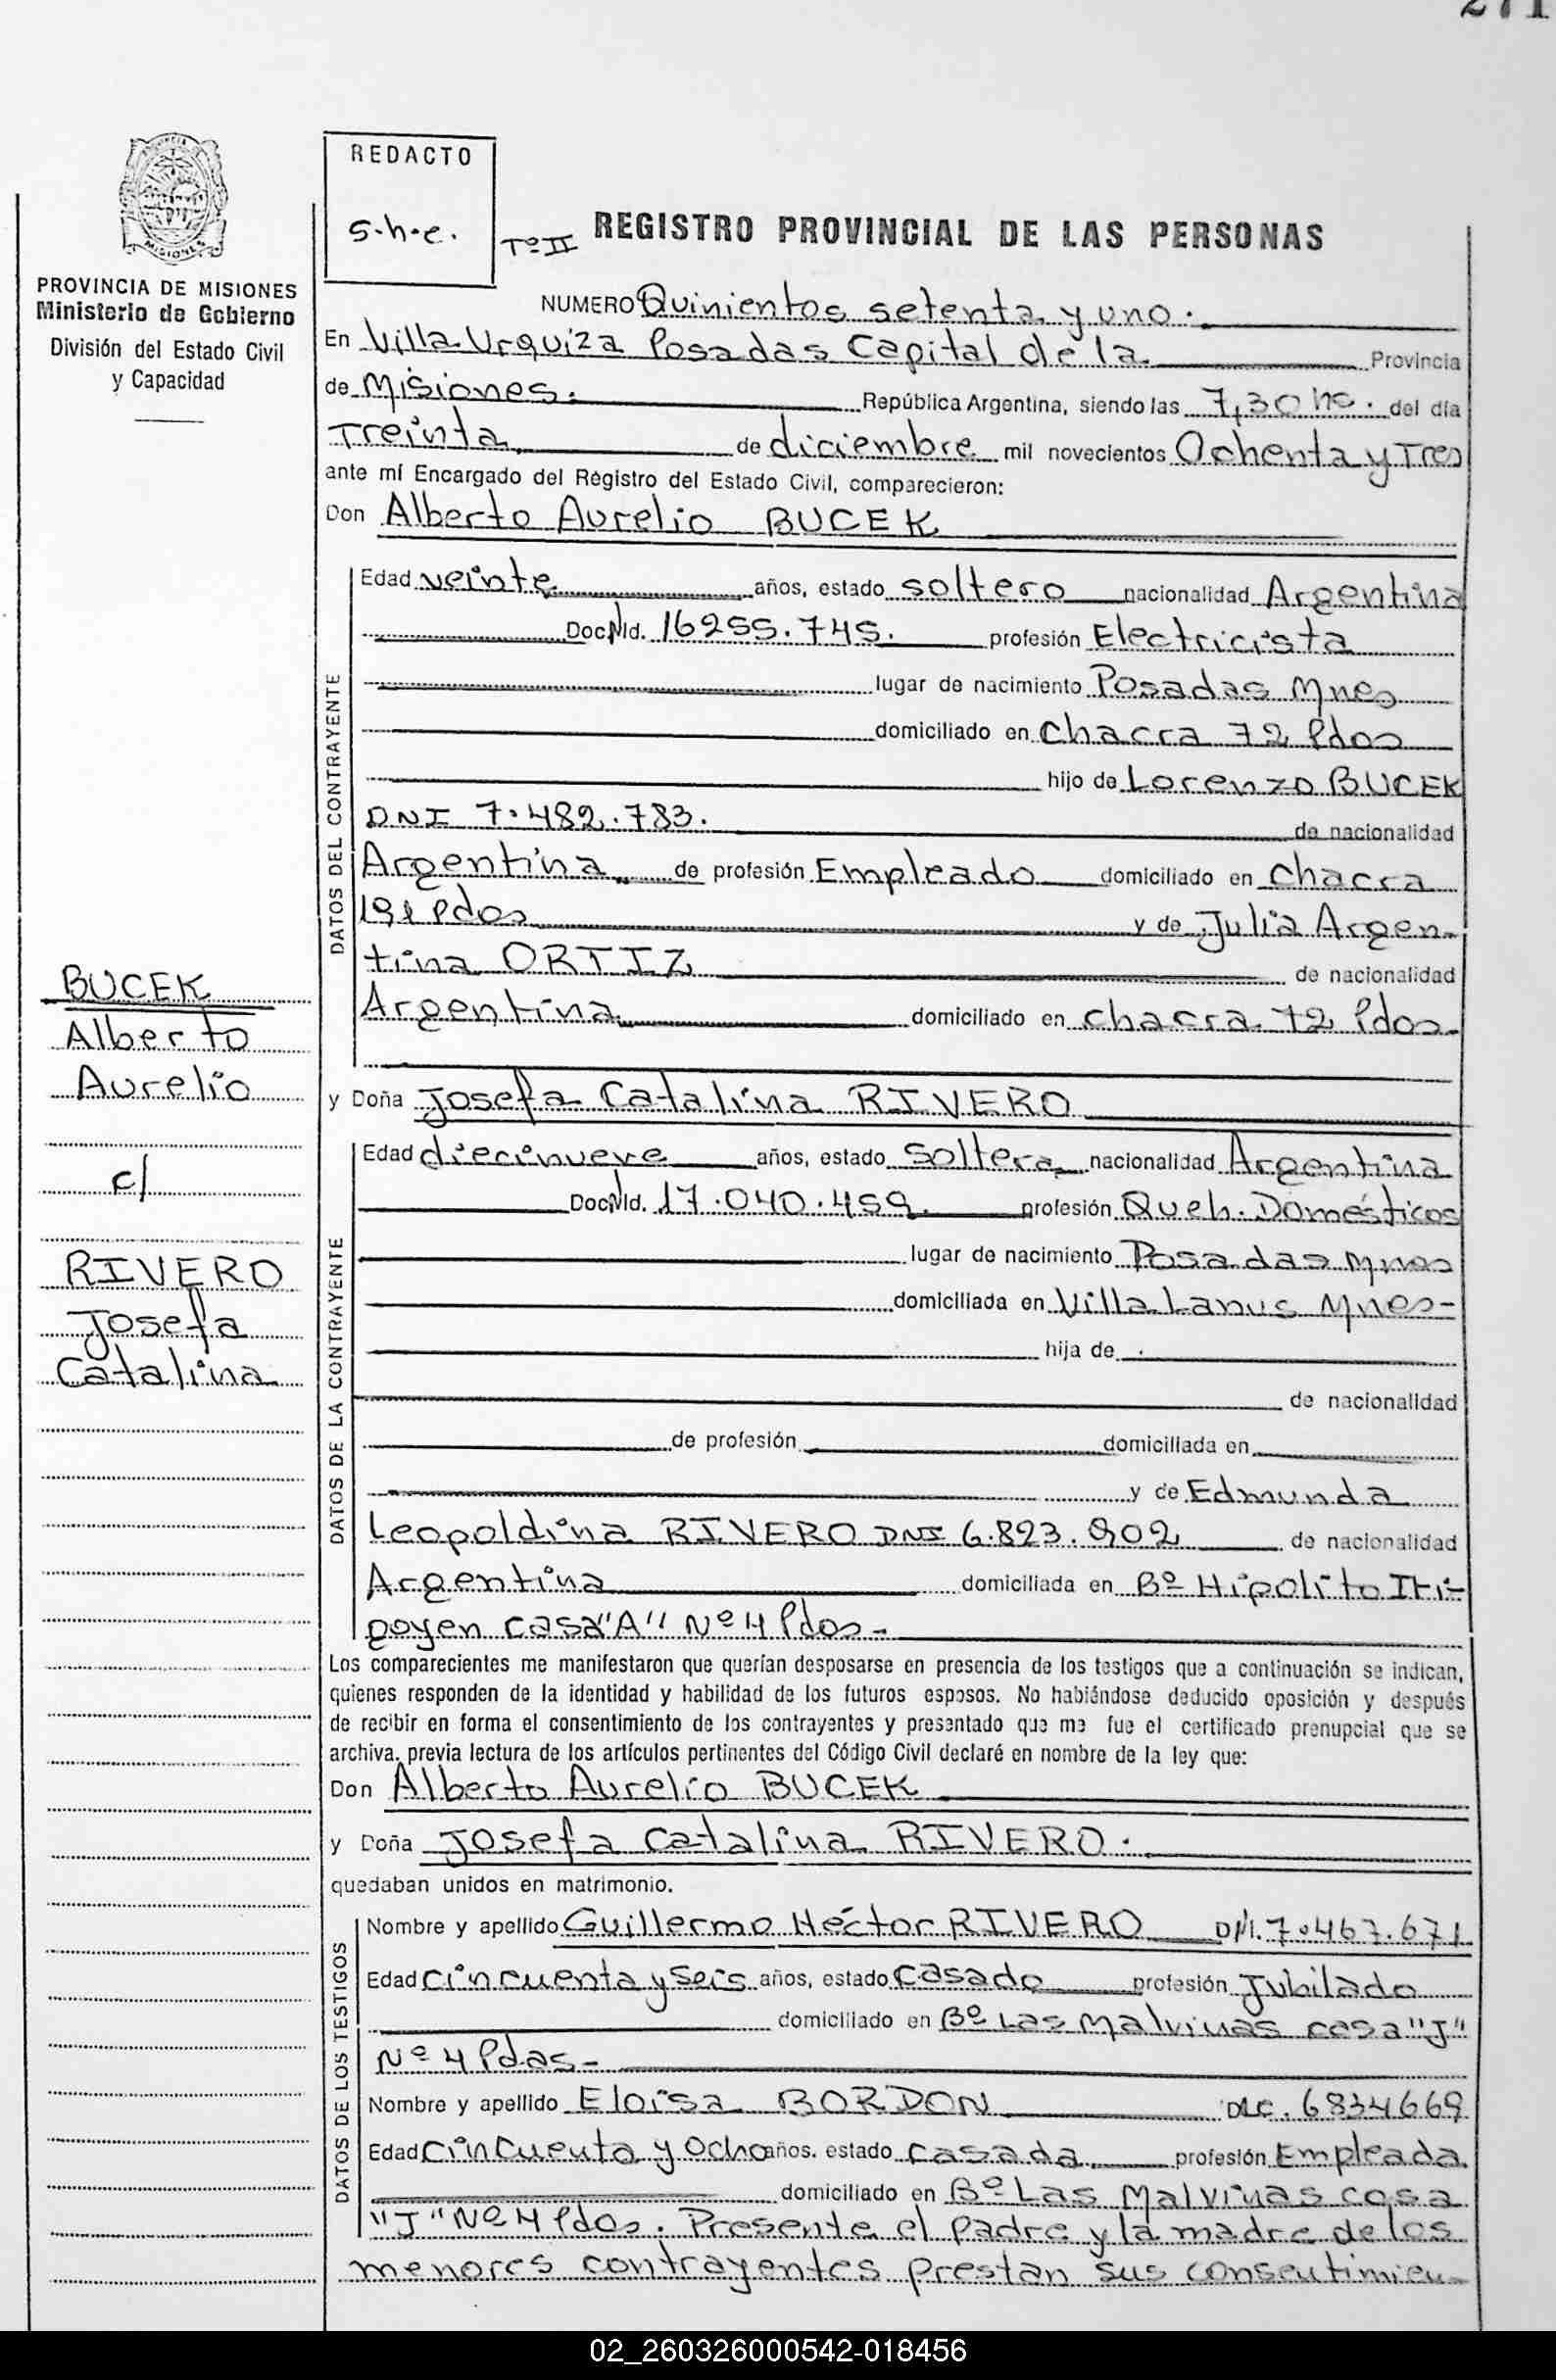 271
REDACTO
s.h.e.
Tº II REGISTRO PROVINCIAL DE LAS PERSONAS
PROVINCIA DE MISIONES
Ministerio de Gobierno
División del Estado Civil
y Capacidad
NUMERO Quinientos setenta y uno.
En Villa Urquiza Posadas Capital de la Provincia
de Misiones. República Argentina, siendo las 7,30 hs. del día
Treinta de diciembre mil novecientos Ochenta y Tres
ante mí Encargado del Registro del Estado Civil, comparecieron:
Don Alberto Aurelio BUCEK
DATOS DEL CONTRAYENTE
Edad veinte años, estado soltero nacionalidad Argentina
Doc. Nld. 16255.745. profesión Electricista
lugar de nacimiento Posadas Mnes
domiciliado en Chacra 72 Pdas
hijo de Lorenzo BUCEK
DNI 7.482.783. de nacionalidad
Argentina de profesión Empleado domiciliado en Chacra
191 Pdas y de Julia Argen-
tina ORTIZ de nacionalidad
Argentina domiciliado en chacra 72 Pdas-
BUCEK
Alberto
Aurelio
c/
RIVERO
Josefa
Catalina
y Doña Josefa Catalina RIVERO
DATOS DE LA CONTRAYENTE
Edad diecinueve años, estado Soltera nacionalidad Argentina
Doc. Nld. 17.040.459. profesión Queh. Domésticos
lugar de nacimiento Posadas Mnes
domiciliada en Villa Lanus Mnes-
hija de
de nacionalidad
de profesión domiciliada en
y de Edmunda
Leopoldina RIVERO DNI 6.823.902 de nacionalidad
Argentina domiciliada en Bº Hipolito Iri-
goyen casa "A" Nº 4 Pdas-
Los comparecientes me manifestaron que querían desposarse en presencia de los testigos que a continuación se indican,
quienes responden de la identidad y habilidad de los futuros esposos. No habiéndose deducido oposición y después
de recibir en forma el consentimiento de los contrayentes y presentado que me fue el certificado prenupcial que se
archiva, previa lectura de los artículos pertinentes del Código Civil declaré en nombre de la ley que:
Don Alberto Aurelio BUCEK
y Doña Josefa Catalina RIVERO.
quedaban unidos en matrimonio.
DATOS DE LOS TESTIGOS
Nombre y apellido Guillermo Héctor RIVERO DNI. 7.467.671
Edad Cincuenta y Seis años, estado Casado profesión Jubilado
domiciliado en Bº Las Malvinas casa "J"
Nº 4 Pdas-
Nombre y apellido Eloisa BORDON DLC. 6834669
Edad Cincuenta y Ocho años, estado casada profesión Empleada
domiciliado en Bº Las Malvinas casa
"J" Nº 4 Pdas. Presente el padre y la madre de los
menores contrayentes prestan sus consentimien-
02_260326000542-018456